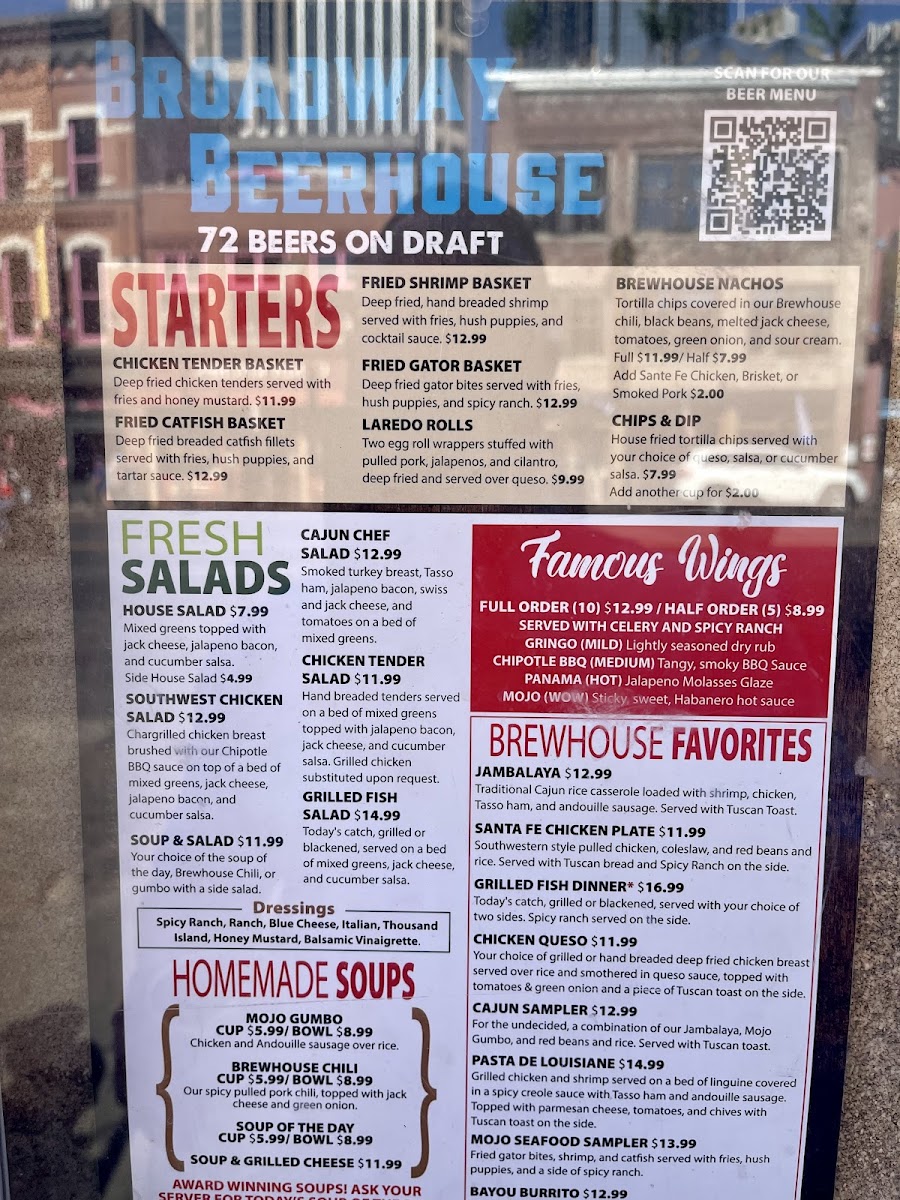 BROADWAY
BEERHOUSE
72 BEERS ON DRAFT
SCAN FOR OUR
BEER MENU
STARTERS
CHICKEN TENDER BASKET
Deep fried chicken tenders served with
fries and honey mustard. $11.99
FRIED CATFISH BASKET
Deep fried breaded catfish fillets
served with fries, hush puppies, and
tartar sauce. $12.99
FRIED SHRIMP BASKET
Deep fried, hand breaded shrimp
served with fries, hush puppies, and
cocktail sauce. $12.99
FRIED GATOR BASKET
Deep fried gator bites served with fries,
hush puppies, and spicy ranch. $12.99
LAREDO ROLLS
Two egg roll wrappers stuffed with
pulled pork, jalapenos, and cilantro,
deep fried and served over queso. $9.99
BREWHOUSE NACHOS
Tortilla chips covered in our Brewhouse
chili, black beans, melted jack cheese,
tomatoes, green onion, and sour cream.
Full $11.99/ Half $7.99
Add Sante Fe Chicken, Brisket, or
Smoked Pork $2.00
CHIPS & DIP
House fried tortilla chips served with
your choice of queso, salsa, or cucumber
salsa. $7.99
Add another cup for $2.00
FRESH
SALADS
HOUSE SALAD $7.99
Mixed greens topped with
jack cheese, jalapeno bacon,
and cucumber salsa.
Side House Salad $4.99
SOUTHWEST CHICKEN
SALAD $12.99
Chargrilled chicken breast
brushed with our Chipotle
BBQ sauce on top of a bed of
mixed greens, jack cheese,
jalapeno bacon, and
cucumber salsa.
SOUP & SALAD $11.99
Your choice of the soup of
the day, Brewhouse Chili, or
gumbo with a side salad.
CAJUN CHEF
SALAD $12.99
Smoked turkey breast, Tasso
ham, jalapeno bacon, swiss
and jack cheese, and
tomatoes on a bed of
mixed greens.
CHICKEN TENDER
SALAD $11.99
Hand breaded tenders served
on a bed of mixed greens
topped with jalapeno bacon,
jack cheese, and cucumber
salsa. Grilled chicken
substituted upon request.
GRILLED FISH
SALAD $14.99
Today's catch, grilled or
blackened, served on a bed
of mixed greens, jack cheese,
and cucumber salsa.
Dressings
Spicy Ranch, Ranch, Blue Cheese, Italian, Thousand
Island, Honey Mustard, Balsamic Vinaigrette.
HOMEMADE SOUPS
MOJO GUMBO
CUP $5.99/ BOWL $8.99
Chicken and Andouille sausage over rice.
BREWHOUSE CHILI
CUP $5.99/ BOWL $8.99
Our spicy pulled pork chili, topped with jack
cheese and green onion.
SOUP OF THE DAY
CUP $5.99/ BOWL $8.99
SOUP & GRILLED CHEESE $11.99
AWARD WINNING SOUPS! ASK YOUR
SERVER FOR TODAY'S SOUP OF THE
Famous Wings
FULL ORDER (10) $12.99 / HALF ORDER (5) $8.99
SERVED WITH CELERY AND SPICY RANCH
GRINGO (MILD) Lightly seasoned dry rub
CHIPOTLE BBQ (MEDIUM) Tangy, smoky BBQ Sauce
PANAMA (HOT) Jalapeno Molasses Glaze
MOJO (WOW) Sticky, sweet, Habanero hot sauce
BREWHOUSE FAVORITES
JAMBALAYA $12.99
Traditional Cajun rice casserole loaded with shrimp, chicken,
Tasso ham, and andouille sausage. Served with Tuscan Toast.
SANTA FE CHICKEN PLATE $11.99
Southwestern style pulled chicken, coleslaw, and red beans and
rice. Served with Tuscan bread and Spicy Ranch on the side.
GRILLED FISH DINNER* $16.99
Today's catch, grilled or blackened, served with your choice of
two sides. Spicy ranch served on the side.
CHICKEN QUESO $11.99
Your choice of grilled or hand breaded deep fried chicken breast
served over rice and smothered in queso sauce, topped with
tomatoes & green onion and a piece of Tuscan toast on the side.
CAJUN SAMPLER $12.99
For the undecided, a combination of our Jambalaya, Mojo
Gumbo, and red beans and rice. Served with Tuscan toast.
PASTA DE LOUISIANE $14.99
Grilled chicken and shrimp served on a bed of linguine covered
in a spicy creole sauce with Tasso ham and andouille sausage.
Topped with parmesan cheese, tomatoes, and chives with
Tuscan toast on the side.
MOJO SEAFOOD SAMPLER $13.99
Fried gator bites, shrimp, and catfish served with fries, hush
puppies, and a side of spicy ranch.
BAYOU BURRITO $12.99